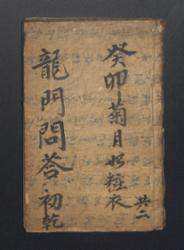 癸卯菊月好粧衣
共二
龍門問答初乾